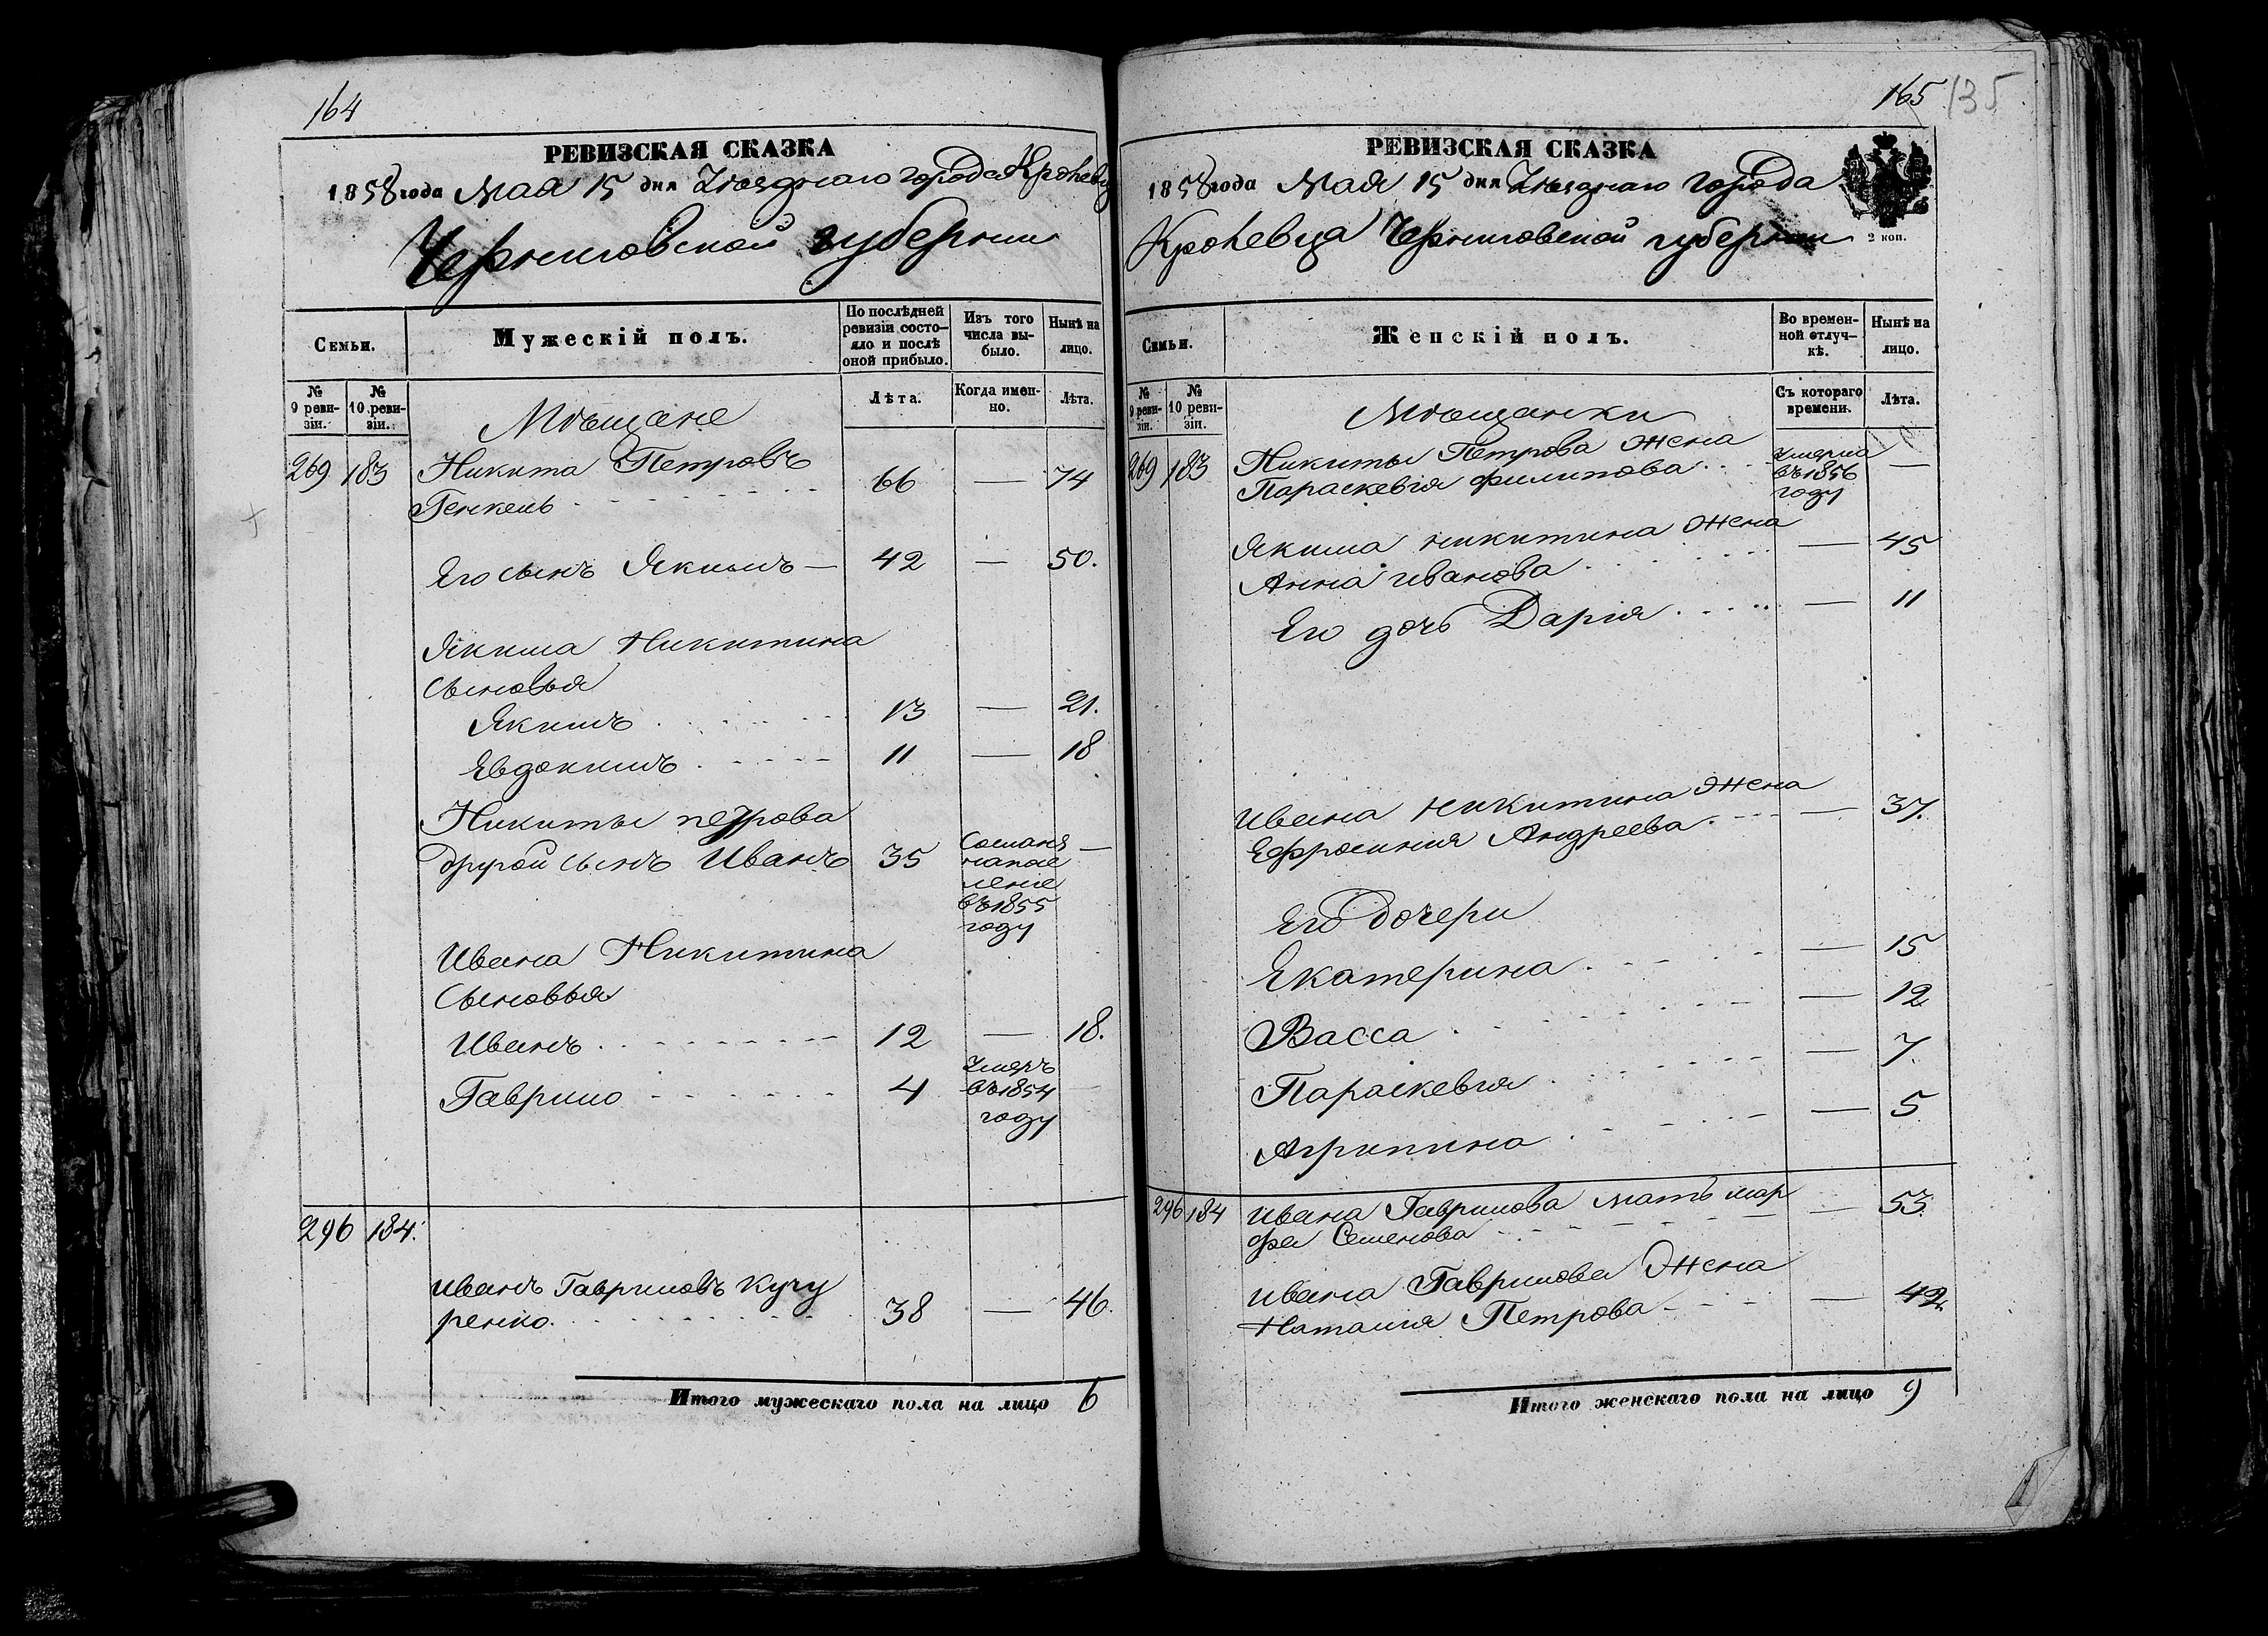 164
РЕВИЗСКАЯ СКАЗКА
1858 года Мая 15 дня Уѣзднаго города Кролевца
Черниговской губернии
Семьи.
Мужескій полъ.
По послѣдней ревизіи состояло и послѣ оной прибыло.
Изъ того числа выбыло.
Нынѣ на лицо.
№ 9 ревизіи.
№ 10 ревизіи.
Лѣта.
Когда именно.
Лѣта.
Мѣщане
269 183 Никита Петровъ
Генкель 66 — 74
Его сынъ Якимъ — 42 — 50.
Якима Никитина
Сыновья
Якимъ 13 — 21.
Евдокимъ 11 — 18
Никиты петрова
другой сынъ Иванъ 35 Сосланъ на посе ленiе въ 1855 году —
Ивана Никитина
Сыновья
Иванъ 12 — 18.
Гаврило 4 Умеръ въ 1854 году —
296 184.
Иванъ Гавриловъ Кучу
ренко. 38 — 46.
Итого мужескаго пола на лицо 6
165 135
РЕВИЗСКАЯ СКАЗКА
1858 года Мая 15 дня Уѣзднаго города
Кролевца Черниговской губернии
2 коп.
Семьи.
Женскій полъ.
Во временной отлучкѣ.
Нынѣ на лицо.
№ 9 ревизіи.
№ 10 ревизіи.
Съ котораго времени.
Лѣта.
Мѣщанки
269 183 Никиты Петрова Жена
Параскевiя филипова Умерла въ 1856 году —
Якима никитина Жена
Анна иванова — 45
Его дочь Дарiя — 11
Ивана никитина Жена
Ефросинiя Андреева — 37.
Его дочери
Екатерина — 15
Васса — 12
Параскевiя — 7.
Агрипина — 5
296 184 Ивана Гаврилова мать мар
фа Семенова — 53.
Ивана Гаврилова Жена
Наталiя Петрова — 42.
Итого женскаго пола на лицо 9